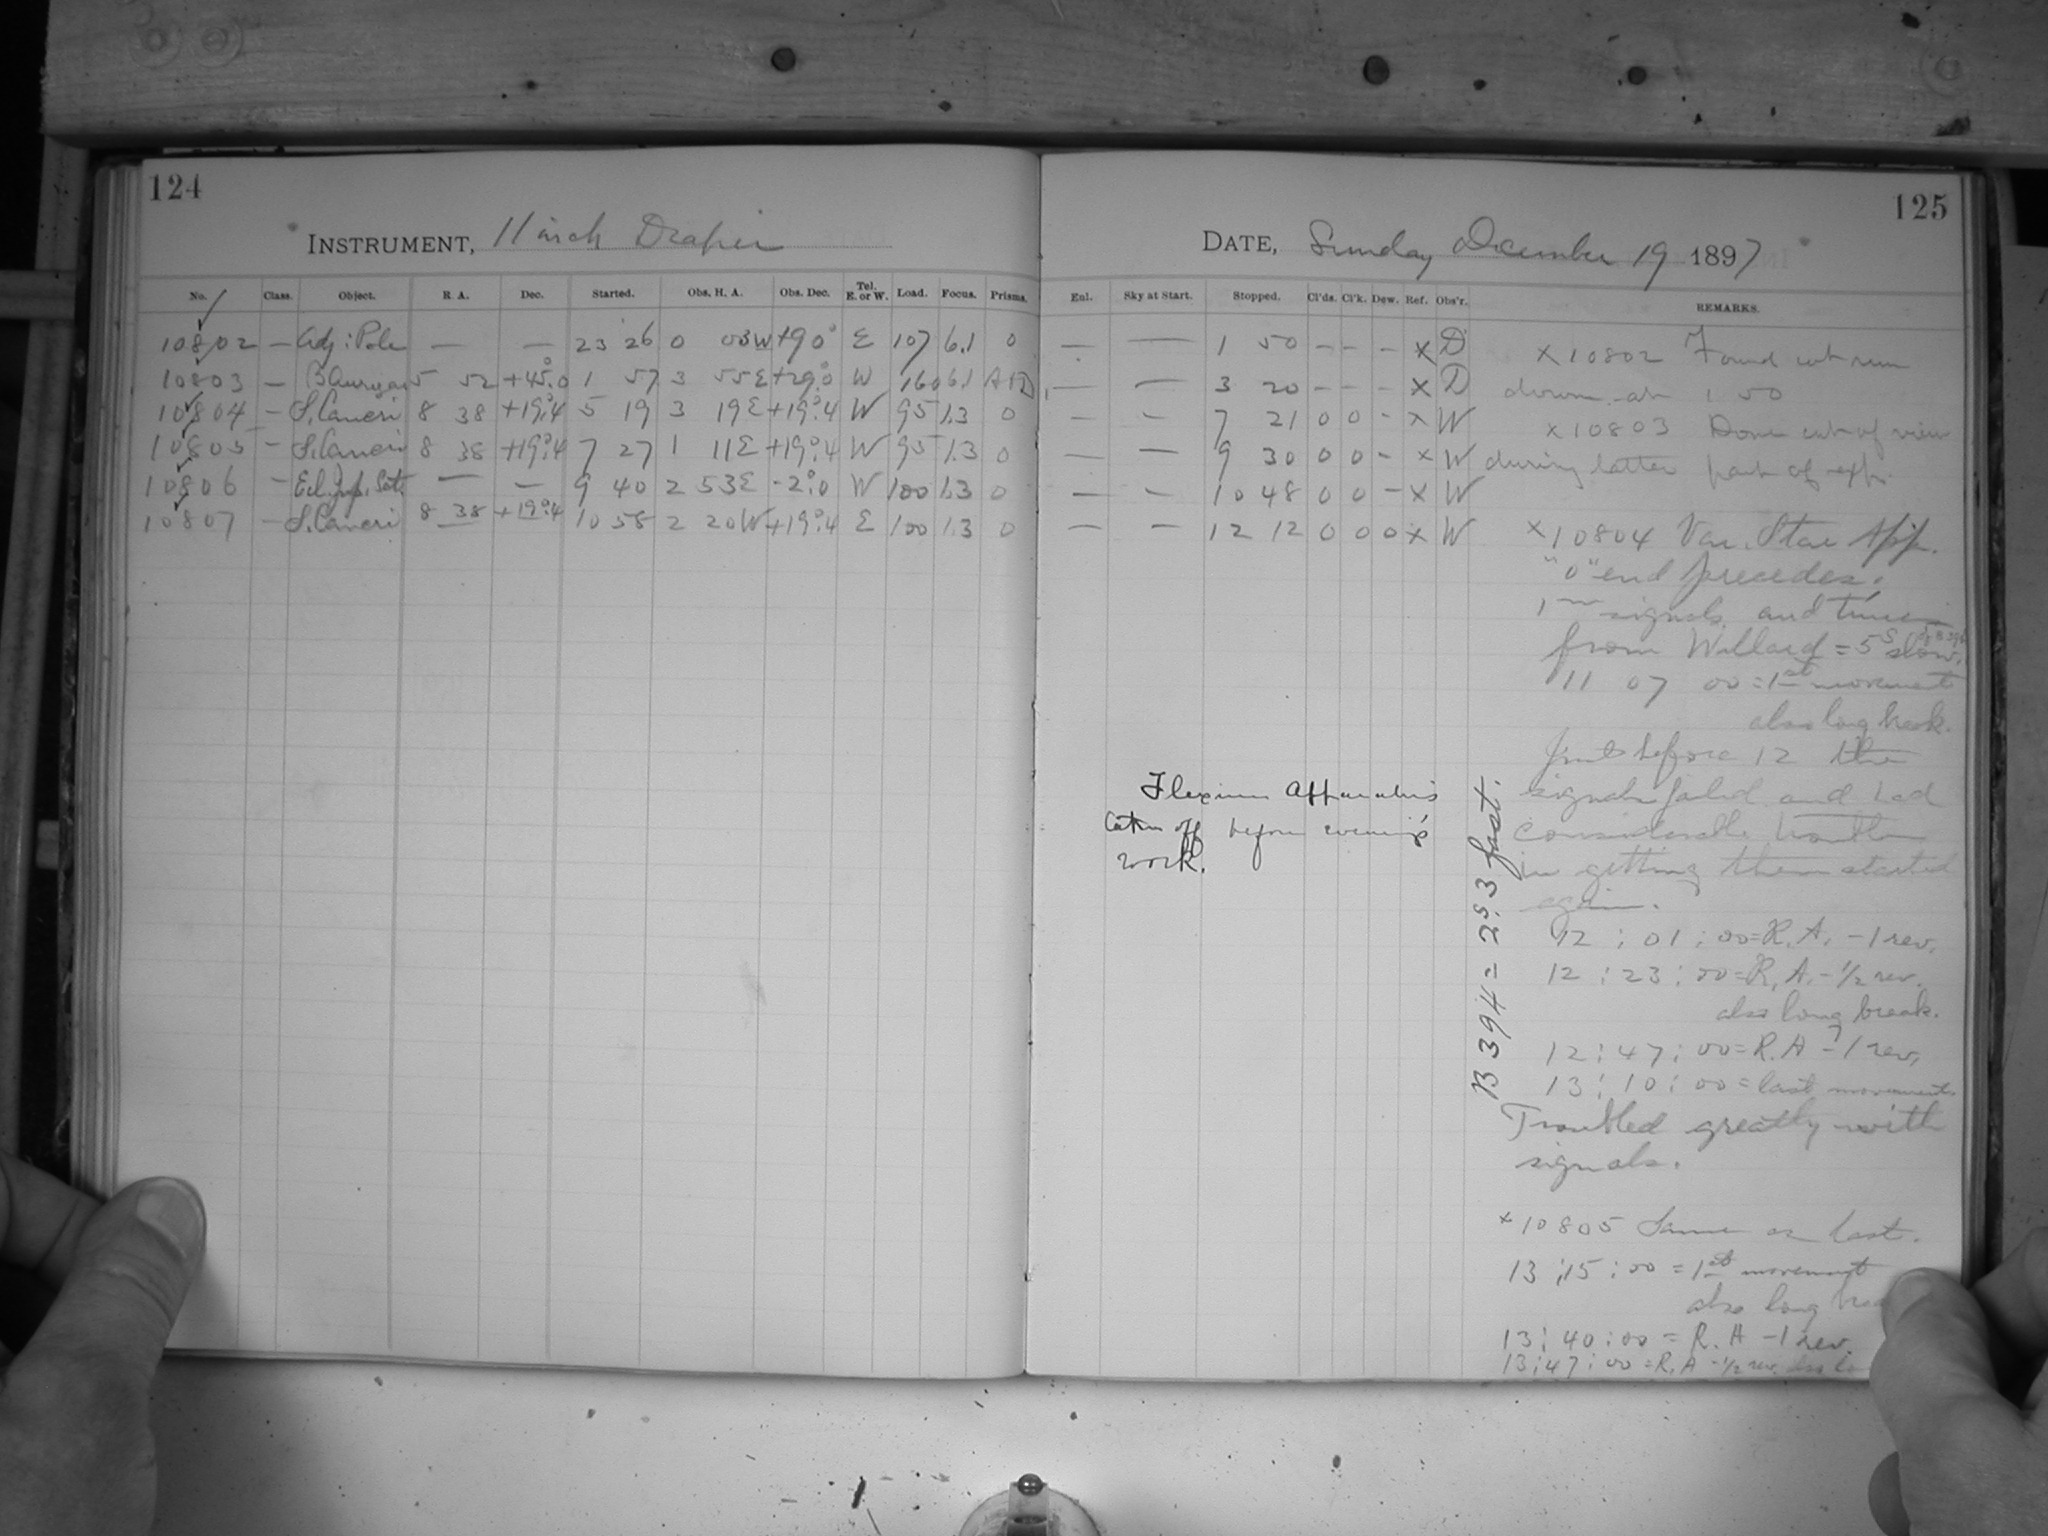 124
INSTRUMENT, 11 inch Draper
No. Class. Object. R. A. Dec. Started. Obs. H. A. Obs. Dec. Tel. E. or W. Load. Focus. Prisms.
10802 — Adj: Pole — — 23 26 0 03W +90° E 107 6.1 0
10803 — B Aurigae 5 52 +45°.0 1 57 3 55E W 160 6.1
10804 — S. Cancri 8 38 +19°.4 5 19 3 19E +19°.4 W 95 1.3 0
10805 — S. Cancri 8 38 +19°.4 7 27 1 11E +19°.4 W 95 1.3 0
10806 — Ecl. Jup. Sat. — — 9 40 2 53E -2°.0 W 100 1.3 0
10807 — S. Cancri 8 38 +19°.4 10 58 2 20W +19°.4 E 100 1.3 0
125
DATE, Sunday December 19 1897
Enl. Sky at Start. Stopped. Cl'ds. Cl'k. Dew. Ref. Obs'r. REMARKS.
— — 1 50 – – – x D
— — 3 20 – – – x D
— — 7 21 0 0 – x W
— — 9 30 0 0 – x W
— — 10 48 0 0 – x W
— — 12 12 0 0 0 x W
x 10802 Found wt run
down at 1 50
x 10803 Dome out of view
during latter part of exp.
x 10804 Var. Star App.
"0" end precedes.
signals and times
from Willard = 5s slow.
11 07 00 = 1st movement
also long break.
Just before 12 the
signals failed and had
considerable trouble
in getting them started
again.
12 : 01 : 00 = R. A. – 1 rev.
12 : 23 : 00 = R. A. – 1/2 rev.
also long break.
12 : 47 : 00 = R. A – 1 rev.
13 : 10 : 00 = last movement
Troubled greatly with
signals.
x 10805 Same as last.
13 : 15 : 00 = 1st movement
also long
13 : 40 : 00 = R. A – 1 rev.
13 : 47 : 00 = R. A – 1/2 rev. also
Flexure Apparatus
taken off before evening's
work.
B 394 = 2s.3 fast.